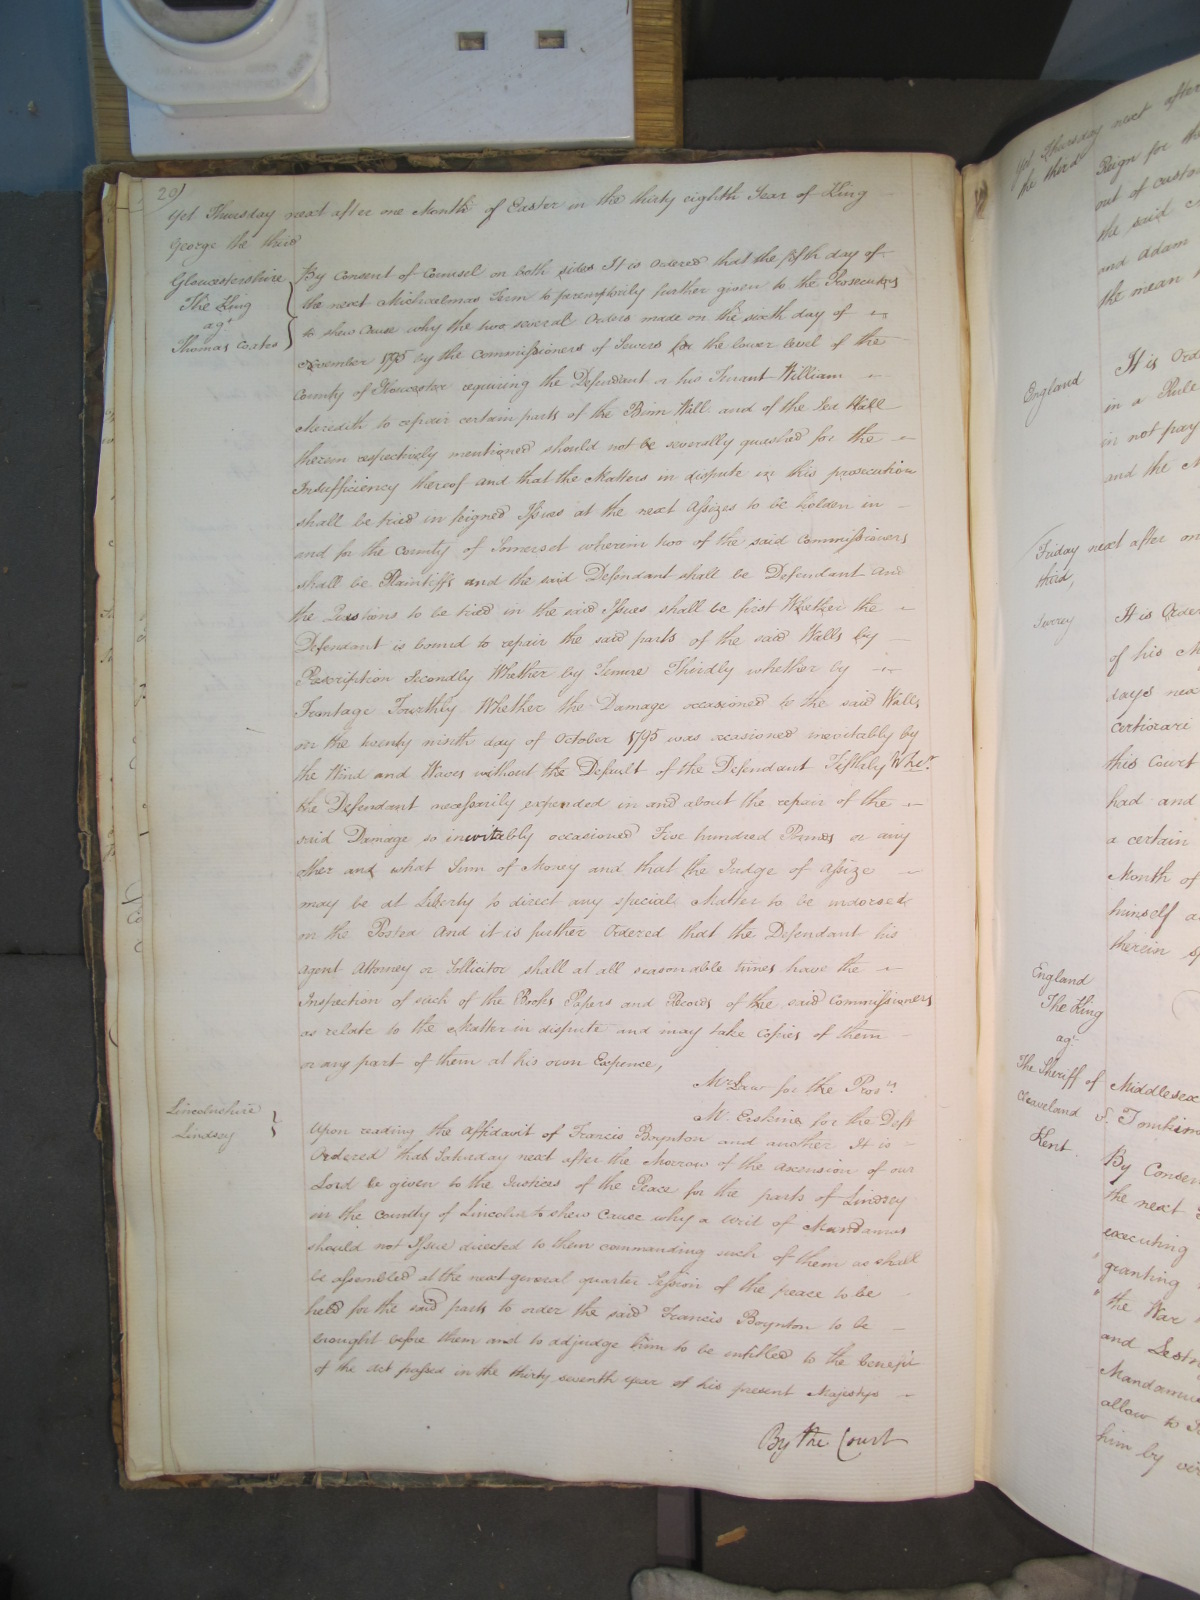 201
Yet Thursday next after one Month of Easter in the thirty eighth Year of King
George the third
Gloucestershire
The King
agt
Thomas Coates
By Consent of Counsel on both sides It is Ordered that the fifth day of
the next Michaelmas Term to peremptorily further given to the Prosecutors
to shew Cause why the two several Orders made on the sixth day of
November 1795 by the Commissioners of Sewers for the lower level of the
County of Gloucester requiring the Defendant or his Tenant William
Meredith to repair certain parts of the Binn Wall and of the Sea Wall
therein respectively mentioned should not be severally quashed for the
Insufficiency thereof and that the Matters in dispute in this prosecution
shall be tried in feigned Issues at the next Assizes to be holden in
and for the County of Somerset wherein two of the said Commissioners
shall be Plaintiffs and the said Defendant shall be Defendant and
the Questions to be tried in the said Issues shall be first Whether the
Defendant is bound to repair the said parts of the said Walls by
Prescription Secondly Whether by Tenure Thirdly whether by
Frontage Fourthly Whether the Damage occasioned to the said Walls
on the twenty ninth day of October 1795 was occasioned inevitably by
the Wind and Waves without the Default of the Defendant Fifthly Wher.
the Defendant necessarily expended in and about the repair of the
said Damage so inevitably occasioned Five hundred Pounds or any
other and what Sum of Money and that the Judge of Assize
may be at Liberty to direct any special Matter to be indorsed
on the Postea And it is further Ordered that the Defendant his
Agent Attorney or Sollicitor shall at all seasonable times have the
Inspection of such of the Books Papers and Records of the said Commissioners
as relate to the Matter in dispute and may take Copies of them
or any part of them at his own Expence,
Mr. Law for the Prosrs
Mr. Erskine for the Deft
Lincolnshire
Lindsey
Upon reading the Affidavit of Francis Boynton and another It is
Ordered that Saturday next after the Morrow of the Ascension of our
Lord be given to the Justices of the Peace for the parts of Lindsey
in the County of Lincoln to shew Cause why a writ of Mandamus
should not Issue directed to them commanding such of them as shall
be assembled at the next general quarter Session of the peace to be
held for the said parts to order the said Francis Boynton to be
brought before them and to adjudge him to be intitled to the benefit
of the Act passed in the thirty seventh year of his present Majestys
By the Court
Yet Thursday next after
the third
Reign for the
out of custo
the said
and Adam
the mean
England
It is Orde
in a Rule
in not pay
and the M
Friday next after on
third,
Surrey
It is Order
of his M
days nex
certiorari
this Court
had and
a certain
Month of
himself a
therein sp
England
The King
agt
The Sheriff of Middlesex
Cleaveland v. Tomkins
Kent
By Consen
the next
executing
granting
the War
and Lestr
Mandamus
allow to
him by vir